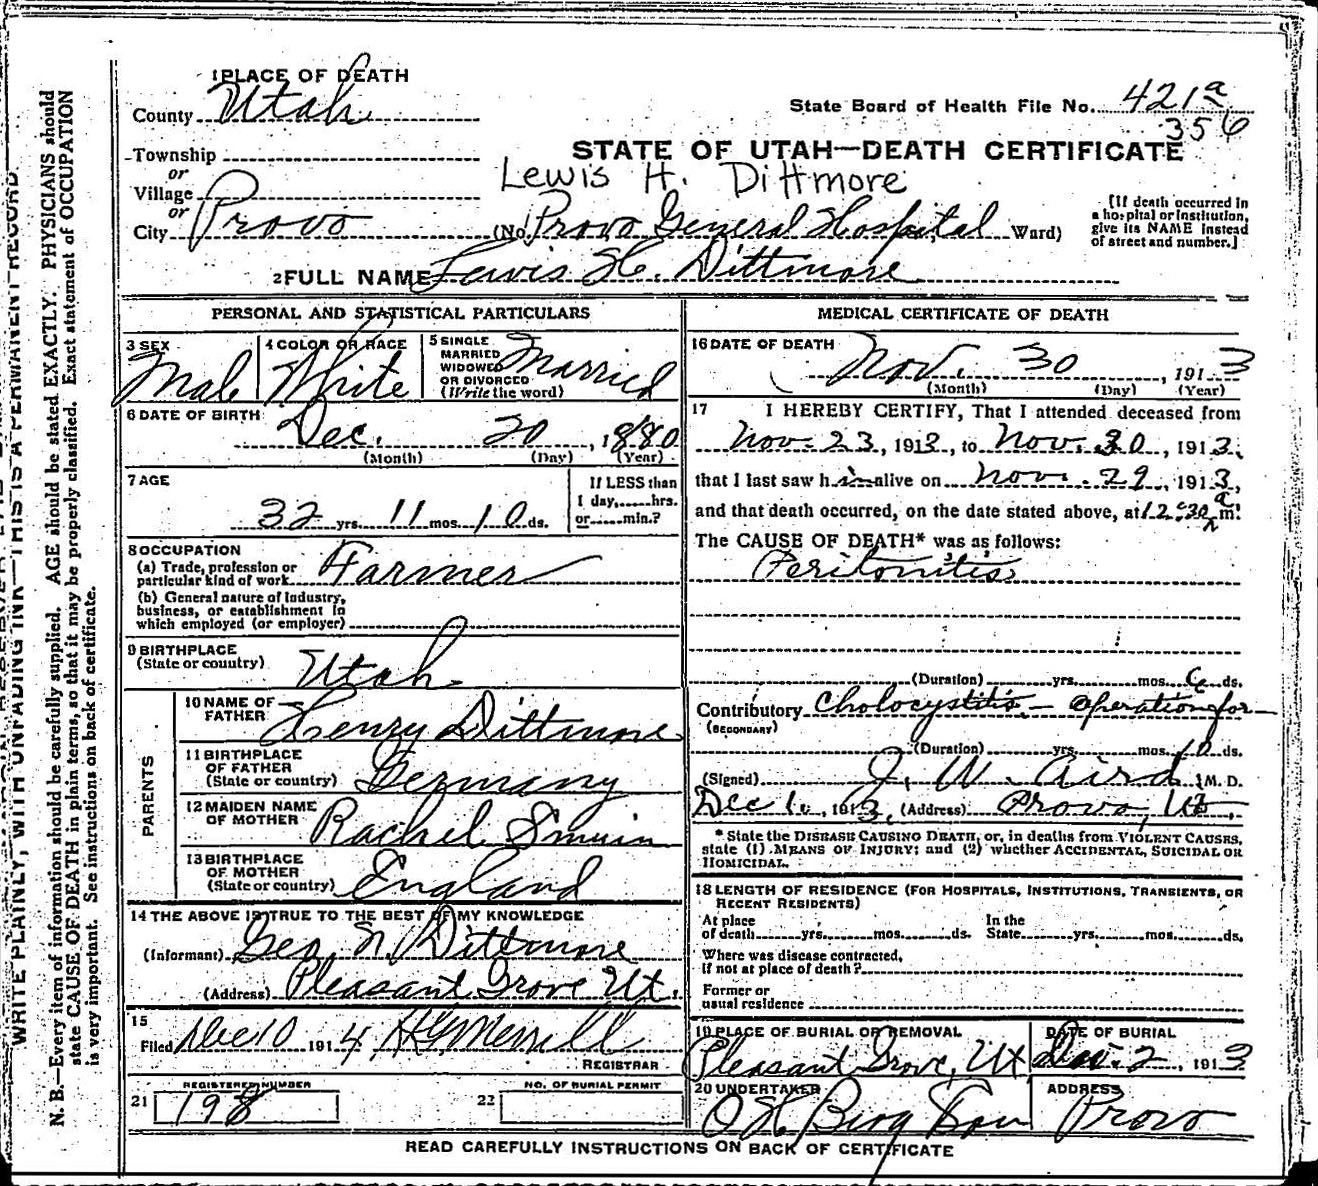 1 PLACE OF DEATH
County Utah
State Board of Health File No. 421a
356
Township
or
Village
or
City Provo
STATE OF UTAH—DEATH CERTIFICATE
Lewis H. Dittmore
(No. Provo General Hospital Ward)
[If death occurred in
a hospital or institution,
give its NAME instead
of street and number.]
2 FULL NAME Lewis H. Dittmore
PERSONAL AND STATISTICAL PARTICULARS
3 SEX
Male
4 COLOR OR RACE
White
5 SINGLE
MARRIED
WIDOWED
OR DIVORCED
(Write the word)
Married
6 DATE OF BIRTH
Dec. 20, 1880
(Month) (Day) (Year)
7 AGE
32 yrs. 11 mos. 10 ds.
If LESS than
1 day,......hrs.
or......min.?
8 OCCUPATION
(a) Trade, profession or
particular kind of work Farmer
(b) General nature of industry,
business, or establishment in
which employed (or employer)
9 BIRTHPLACE
(State or country) Utah
PARENTS
10 NAME OF
FATHER Henry Dittmore
11 BIRTHPLACE
OF FATHER
(State or country) Germany
12 MAIDEN NAME
OF MOTHER Rachel Smuin
13 BIRTHPLACE
OF MOTHER
(State or country) England
14 THE ABOVE IS TRUE TO THE BEST OF MY KNOWLEDGE
(Informant) Geo. N. Dittmore
(Address) Pleasant Grove Ut.
15
Filed Dec 10 1914 H G Merrill
REGISTRAR
REGISTERED NUMBER
21 198
NO. OF BURIAL PERMIT
22
MEDICAL CERTIFICATE OF DEATH
16 DATE OF DEATH
Nov. 30, 1913
(Month) (Day) (Year)
17 I HEREBY CERTIFY, That I attended deceased from
Nov. 23, 1913, to Nov. 30, 1913,
that I last saw him alive on Nov. 29, 1913,
and that death occurred, on the date stated above, at 12:30 a m.
The CAUSE OF DEATH* was as follows:
Peritonitis
(Duration) yrs. mos. ds.
Contributory Cholocystitis — operation for —
(SECONDARY)
(Duration) yrs. mos. 10 ds.
(Signed) J. W. Aird M. D.
Dec 1, 1913, (Address) Provo, Ut.
* State the DISEASE CAUSING DEATH, or, in deaths from VIOLENT CAUSES,
state (1) MEANS OF INJURY; and (2) whether ACCIDENTAL, SUICIDAL OR
HOMICIDAL.
18 LENGTH OF RESIDENCE (FOR HOSPITALS, INSTITUTIONS, TRANSIENTS, OR
RECENT RESIDENTS)
At place In the
of death yrs. mos. ds. State yrs. mos. ds.
Where was disease contracted,
if not at place of death?
Former or
usual residence
19 PLACE OF BURIAL OR REMOVAL
Pleasant Grove, Ut
DATE OF BURIAL
Dec. 2, 1913
20 UNDERTAKER
O H Berg & Son
ADDRESS
Provo
READ CAREFULLY INSTRUCTIONS ON BACK OF CERTIFICATE
WRITE PLAINLY, WITH UNFADING INK—THIS IS A PERMANENT RECORD.
N. B.—Every item of information should be carefully supplied. AGE should be stated EXACTLY. PHYSICIANS should
state CAUSE OF DEATH in plain terms, so that it may be properly classified. Exact statement of OCCUPATION
is very important. See instructions on back of certificate.